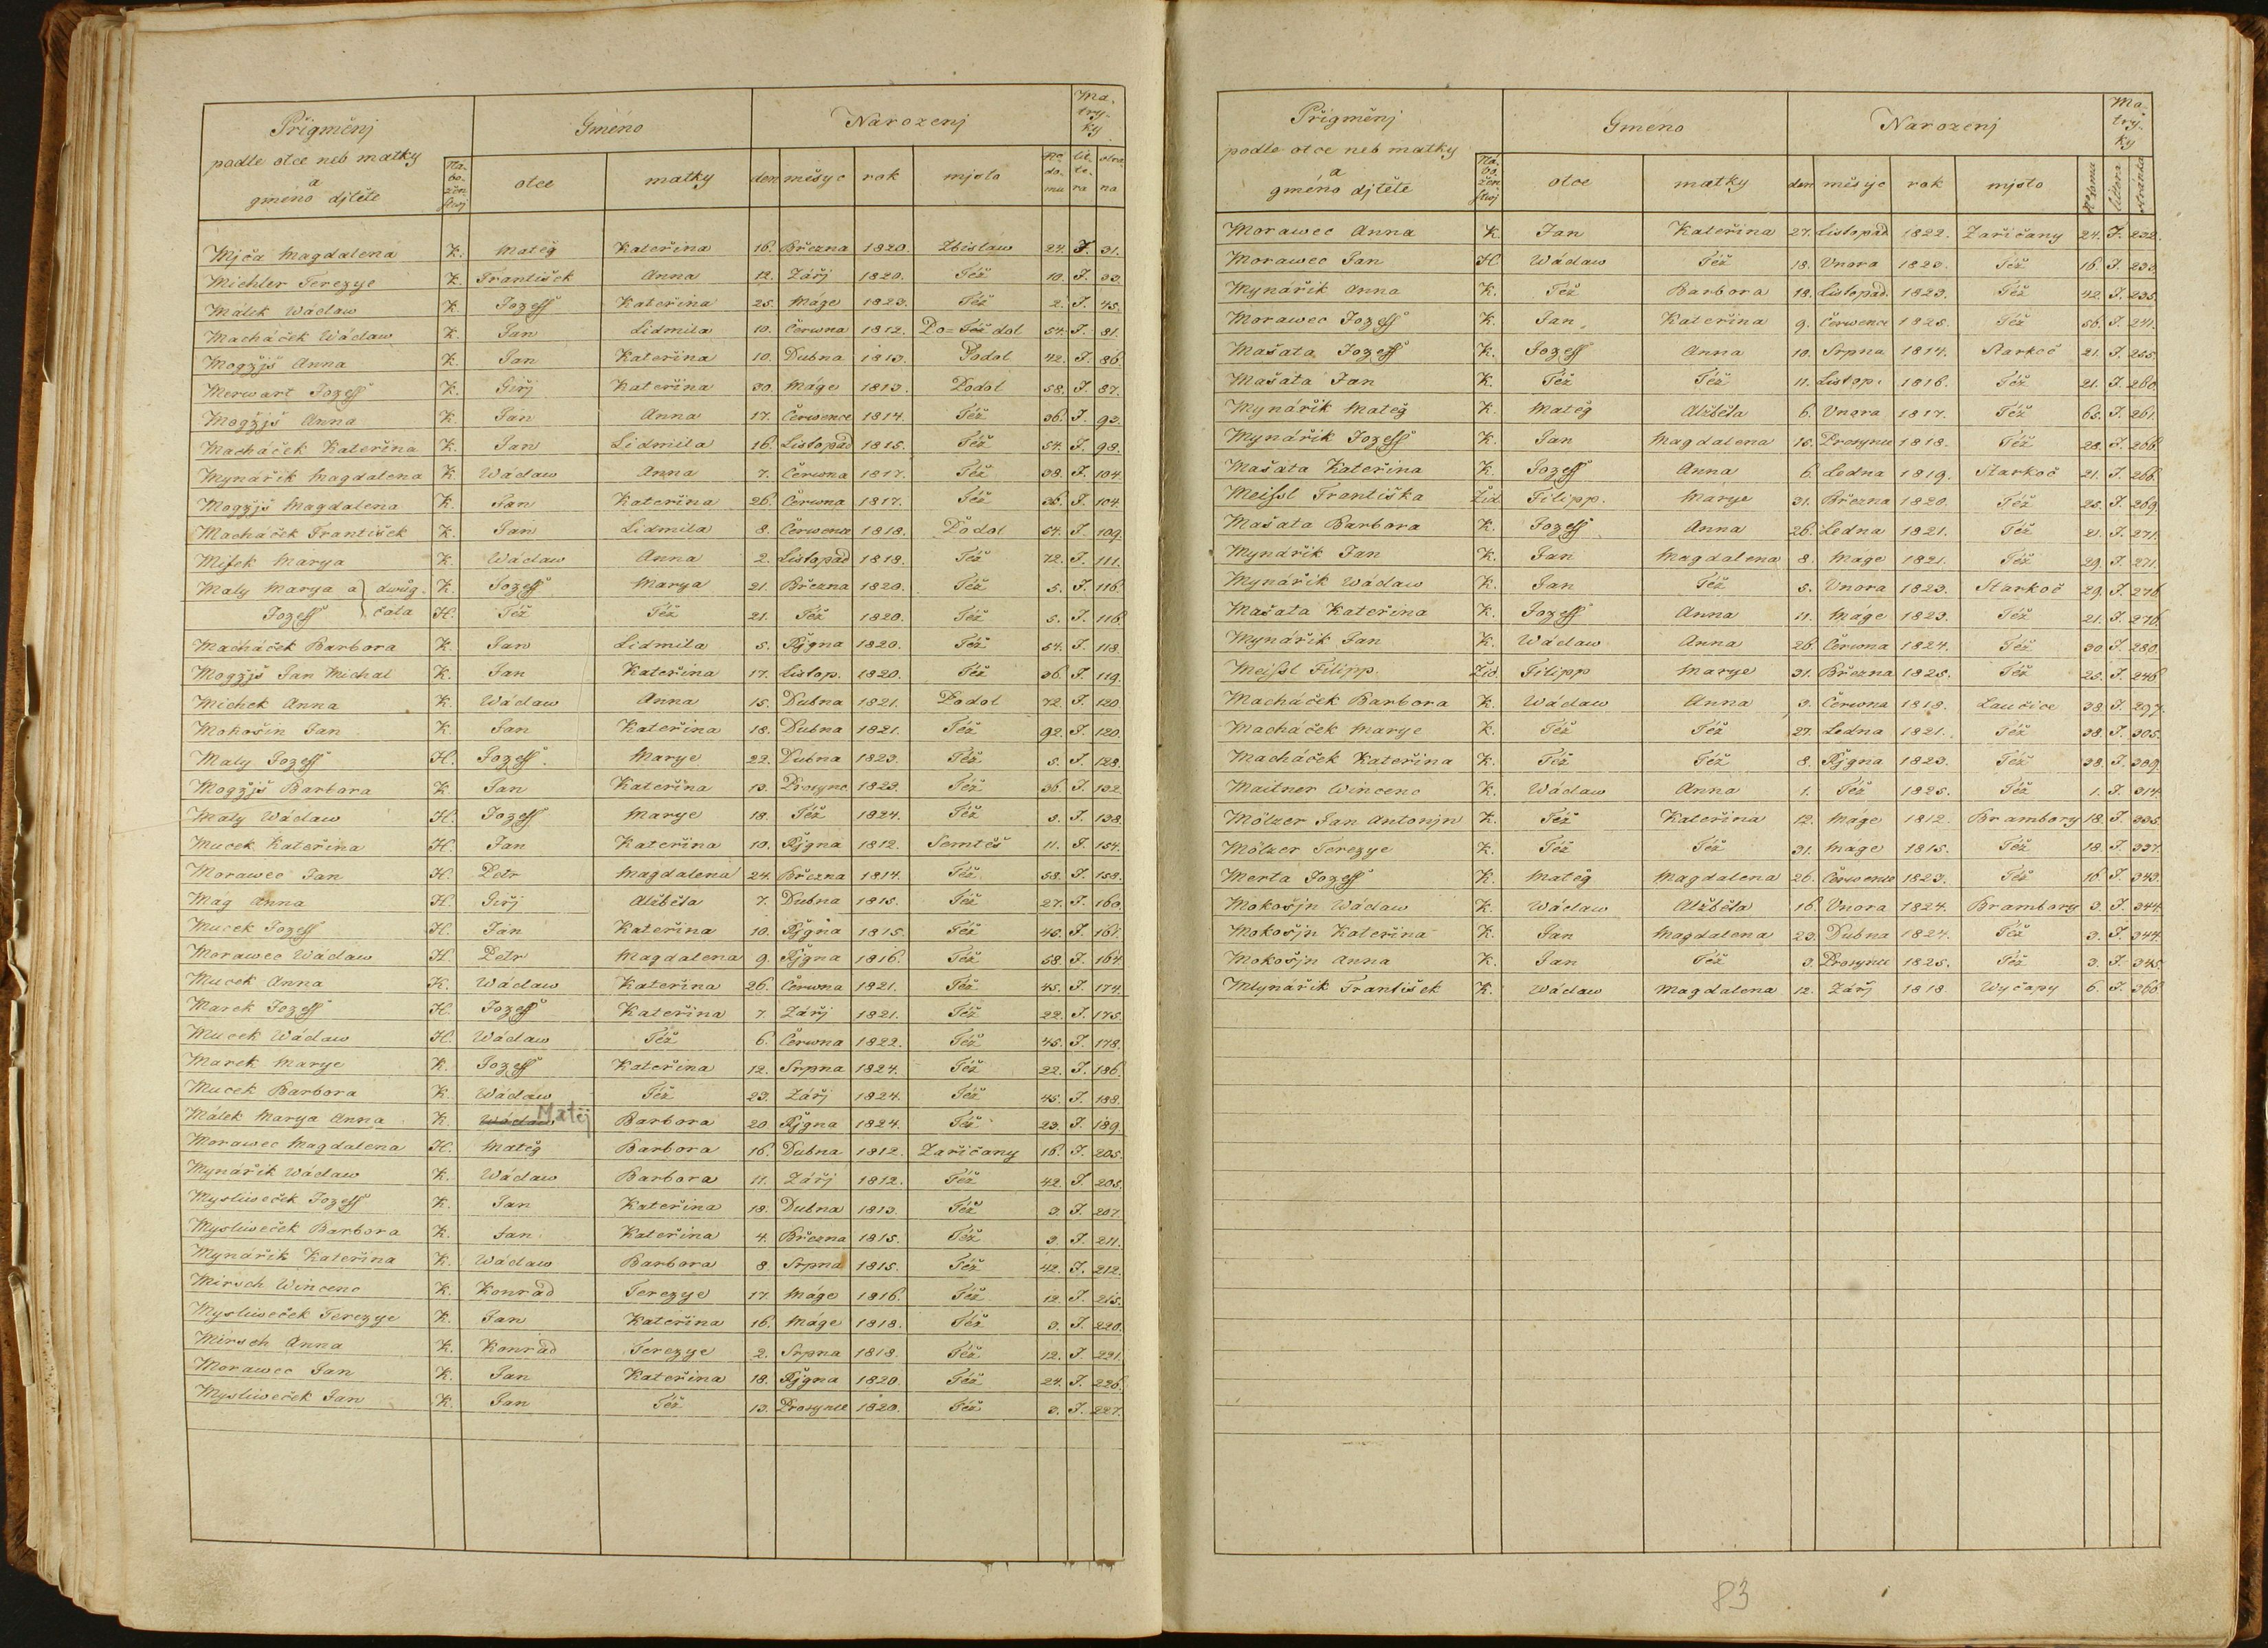 Přigměnj
podle otce neb matky
a
gméno djtěte
Nábožen stwj
Gméno
otce
matky
Narozenj
den
měsyc
rok
mjsto
No domu
Matryky
litera
strana
Mjča Magdalena K. Matěg Kateřina 16. Března 1820. Zbislaw 24. J. 31.
Michler Terezye K. František Anna 12. Zářj 1820. Též 10. J. 33.
Málek Wáclaw K. Jozeff Kateřina 25. Máge 1823. Též 2. J. 45.
Macháček Wáclaw K. Jan Lidmila 10. Června 1812. Po= Též dol 54. J. 81.
Mogžjš Anna K. Jan Kateřina 10. Dubna 1813. Podol 42. J. 86.
Merwart Jozeff K. Giřj Kateřina 30. Máge 1813. Podol 58. J. 87.
Mogžjš Anna K. Jan Anna 17. Července 1814. Též 36. J. 93.
Macháček Kateřina K. Jan Lidmila 16. Listopad 1815. Též 54. J. 98.
Mynářik Magdalena K. Wáclaw Anna 7. Června 1817. Též 38. J. 104.
Mogžjš Magdalena K. Jan Kateřina 26. Června 1817. Též 36. J. 104.
Macháček František K. Jan Lidmila 8. Července 1818. Podol 54. J. 109.
Misek Marya K. Wáclaw Anna 2. Listopad 1818. Též 72. J. 111.
Maly Marya a dwůg. K. Jozeff Marya 21. Března 1820. Též 5. J. 116.
Jozeff čata H. Též Též 21. Též 1820. Též 5. J. 116.
Macháček Barbora K. Jan Lidmila 5. Řjgna 1820. Též 54. J. 118.
Mogžjš Jan Michal K. Jan Kateřina 17. Listop. 1820. Též 36. J. 119.
Michek Anna K. Wáclaw Anna 15. Dubna 1821. Podol 72. J. 120.
Mokošin Jan K. Jan Kateřina 18. Dubna 1821. Též 92. J. 120.
Maly Jozeff H. Jozeff Marye 22. Dubna 1823. Též 5. J. 128.
Mogžjš Barbora K. Jan Kateřina 13. Prosync. 1823. Též 36. J. 132.
Maly Wáclaw H. Jozeff Marye 18. Též 1824. Též 5. J. 138.
Mucek Kateřina H. Jan Kateřina 10. Řjgna 1812. Semteš 11. J. 154.
Morawec Jan H. Petr Magdalena 24. Března 1814. Též 58. J. 158.
Mág Anna H. Giřj Alžběta 7. Dubna 1815. Též 27. J. 160.
Mucek Jozeff H. Jan Kateřina 10. Řjgna 1815. Též 45. J. 161.
Morawec Wáclaw H. Petr Magdalena 9. Řjgna 1816. Též 58. J. 164.
Mucek Anna K. Wáclaw Kateřina 26. Června 1821. Též 45. J. 174.
Marek Jozeff H. Jozeff Kateřina 7. Zářj 1821. Též 22. J. 175.
Mucek Wáclaw H. Wáclaw Též 6. Června 1822. Též 45. J. 178.
Marek Marye K. Jozeff Kateřina 12. Srpna 1824. Též 22. J. 186.
Mucek Barbora K. Wáclaw Též 23. Zářj 1824. Též 45. J. 188.
Málek Marya Anna K. Wáclaw Matěj Barbora 20 Řjgna 1824. Též 23. J. 189.
Morawec Magdalena H. Matěg Barbora 16. Dubna 1812. Zařičany 16. J. 205.
Mynářik Wáclaw K. Wáclaw Barbora 11. Zářj 1812. Též 42. J. 205.
Mysliweček Jozeff K. Jan Kateřina 18. Dubna 1813. Též 3. J. 207.
Mysliweček Barbora K. Jan Kateřina 4. Března 1815. Též 3. J. 211.
Mynářik Kateřina K. Wáclaw Barbora 8. Srpna 1815. Též 42. J. 212.
Mirsch Wincenc K. Konrad Terezye 17. Máge 1816. Též 12. J. 215.
Mysliweček Terezye K. Jan Kateřina 16. Máge 1818. Též 3. J. 220.
Mirsch Anna K. Konrad Terezye 2. Srpna 1818. Též 12. J. 221.
Morawec Jan K. Jan Kateřina 18. Řjgna 1820. Též 24. J. 226.
Mysliweček Jan K. Jan Též 13. Prosynce 1820. Též 3. J. 227.
Přigměnj
podle otce neb matky
a
gméno djtěte
Nábožen stwj
Gméno
otce
matky
Narozenj
den
měsyc
rok
mjsto
No domu
Matryky
litera
stranka
Morawec Anna K. Jan Kateřina 27. Listopad 1822. Zařičany 24. J. 232.
Morawec Jan H. Wáclaw Též 18. Unora 1823. Též 16. J. 233.
Mynářik Anna K. Též Barbora 18. Listopad. 1823. Též 42. J. 235.
Morawec Jozeff K. Jan Kateřina 9. Července 1825. Též 56. J. 241.
Mašata Jozeff K. Jozeff Anna 10. Srpna 1814. Starkoč 21. J. 255.
Mašata Jan K. Též Též 11. Listop. 1816. Též 21. J. 260.
Mynářik Matěg K. Matěg Alžběta 6. Unora 1817. Též 65. J. 261.
Mynářik Jozeff K. Jan Magdalena 16. Prosynce 1818. Též 28. J. 266.
Mašata Kateřina K. Jozeff Anna 6. Ledna 1819. Starkoč 21. J. 266.
Meissl Františka Žid. Filipp. Márye 31. Března 1820. Též 25. J. 269.
Mašata Barbora K. Jozeff Anna 26. Ledna 1821. Též 21. J. 271.
Mynářik Jan K. Jan Magdalena 8. Máge 1821. Též 29. J. 271.
Mynářik Wáclaw K. Jan Též 5. Unora 1823. Starkoč 29. J. 276.
Mašata Kateřina K. Jozeff Anna 11. Máge 1823. Též 21. J. 276.
Mynářik Jan K. Wáclaw Anna 26. Června 1824. Též 30. J. 280.
Meissl Filipp. Žid. Filipp Marye 31. Března 1825. Též 25. J. 246
Macháček Barbora K. Wáclaw Anna 3. Června 1818. Laučice 38. J. 297.
Macháček Marye K. Též Též 27. Ledna 1821. Též 38. J. 305.
Macháček Kateřina K. Též Též 8. Řjgna 1823. Též 38. J. 309.
Maitner Wincenc K. Wáclaw Anna 1. Též 1825. Též 1. J. 314.
Mölzer Jan Antonjn K. Též Kateřina 12. Máge 1812. Brambory 18. J. 335.
Mölzer Terezye K. Též Též 31. Mage 1815. Též 18. J. 337.
Merta Jozeff K. Matěg Magdalena 26. Července 1823. Též 16. J. 343.
Mokošjn Wáclaw K. Wáclaw Alžběta 16. Unora 1824. Brambory 3. J. 344.
Mokošjn Kateřina K. Jan Magdalena 23. Dubna 1824. Též 3. J. 344.
Mokošjn Anna K. Jan Též 3. Prosynce 1825. Též 3. J. 345.
Mlynářik František K. Wáclaw Magdalena 12. Zářj 1818. Wyčapy 6. J. 366
83